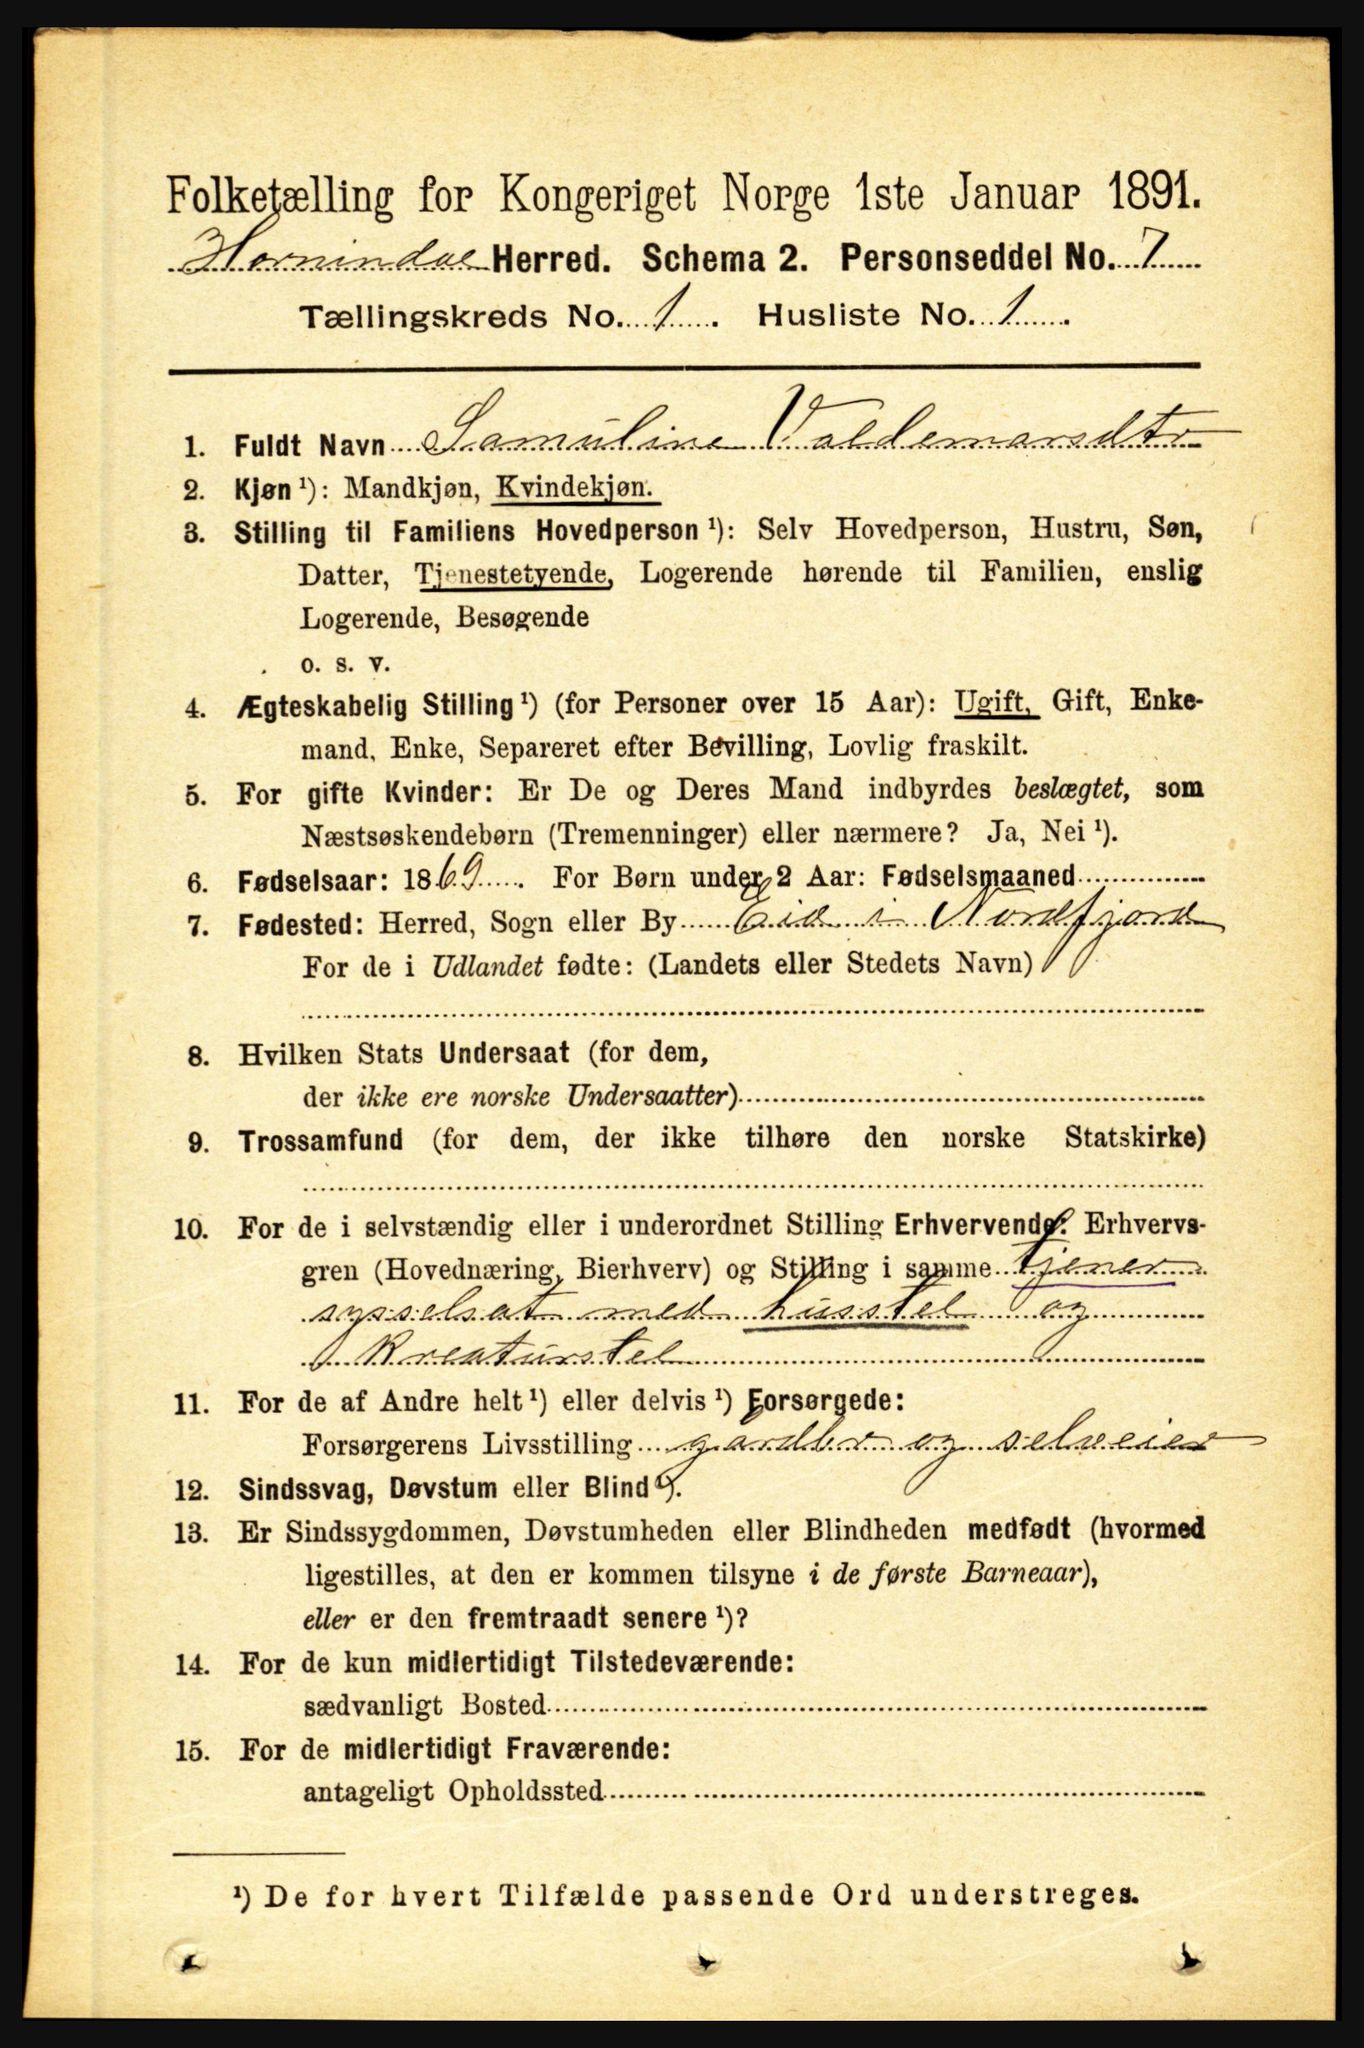 Folketælling for Kongeriget Norge 1ste Januar 1891.
Hornindal Herred. Schema 2. Personseddel No. 7
Tællingskreds No. 1. Husliste No. 1.
1. Fuldt Navn Samuline Valdemarsdtr
2. Kjøn ¹): Mandkjøn, Kvindekjøn.
3. Stilling til Familiens Hovedperson ¹): Selv Hovedperson, Hustru, Søn,
Datter, Tjenestetyende, Logerende hørende til Familien, enslig
Logerende, Besøgende
o. s. v.
4. Ægteskabelig Stilling ¹) (for Personer over 15 Aar): Ugift, Gift, Enke-
mand, Enke, Separeret efter Bevilling, Lovlig fraskilt.
5. For gifte Kvinder: Er De og Deres Mand indbyrdes beslægtet, som
Næstsøskendebørn (Tremenninger) eller nærmere? Ja, Nei ¹).
6. Fødselsaar: 1869. For Børn under 2 Aar: Fødselsmaaned
7. Fødested: Herred, Sogn eller By Eid i Nordfjord
For de i Udlandet fødte: (Landets eller Stedets Navn)
8. Hvilken Stats Undersaat (for dem,
der ikke ere norske Undersaatter)
9. Trossamfund (for dem, der ikke tilhøre den norske Statskirke)
10. For de i selvstændig eller i underordnet Stilling Erhvervende: Erhvervs-
gren (Hovednæring, Bierhverv) og Stilling i samme tjener
sysselsat med husstel og
kreaturstel
11. For de af Andre helt ¹) eller delvis ¹) Forsørgede:
Forsørgerens Livsstilling gårdbr og selveier
12. Sindssvag, Døvstum eller Blind ¹).
13. Er Sindssygdommen, Døvstumheden eller Blindheden medfødt (hvormed
ligestilles, at den er kommen tilsyne i de første Barneaar),
eller er den fremtraadt senere ¹)?
14. For de kun midlertidigt Tilstedeværende:
sædvanligt Bosted
15. For de midlertidigt Fraværende:
antageligt Opholdssted
¹) De for hvert Tilfælde passende Ord understreges.